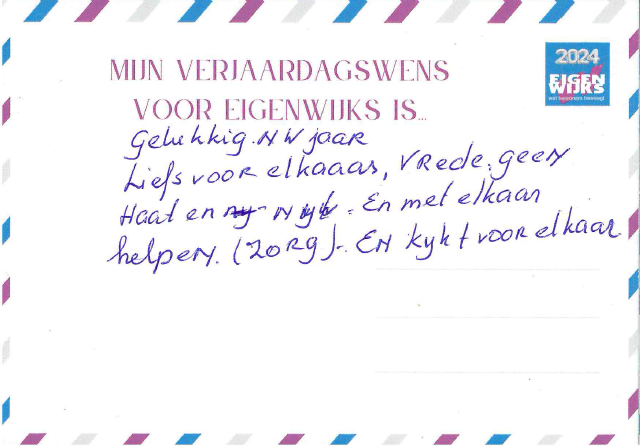 2024
EIGEN
WIJKS
MIJN VERJAARDAGSWENS
VOOR EIGENWIJKS IS...
Gelukkig NW jaar
Liefs voor elkaaas, VRede. geen
Haat en Nijt. En met elkaar
helpen. (ZORG)-. EN kykt voor elkaar